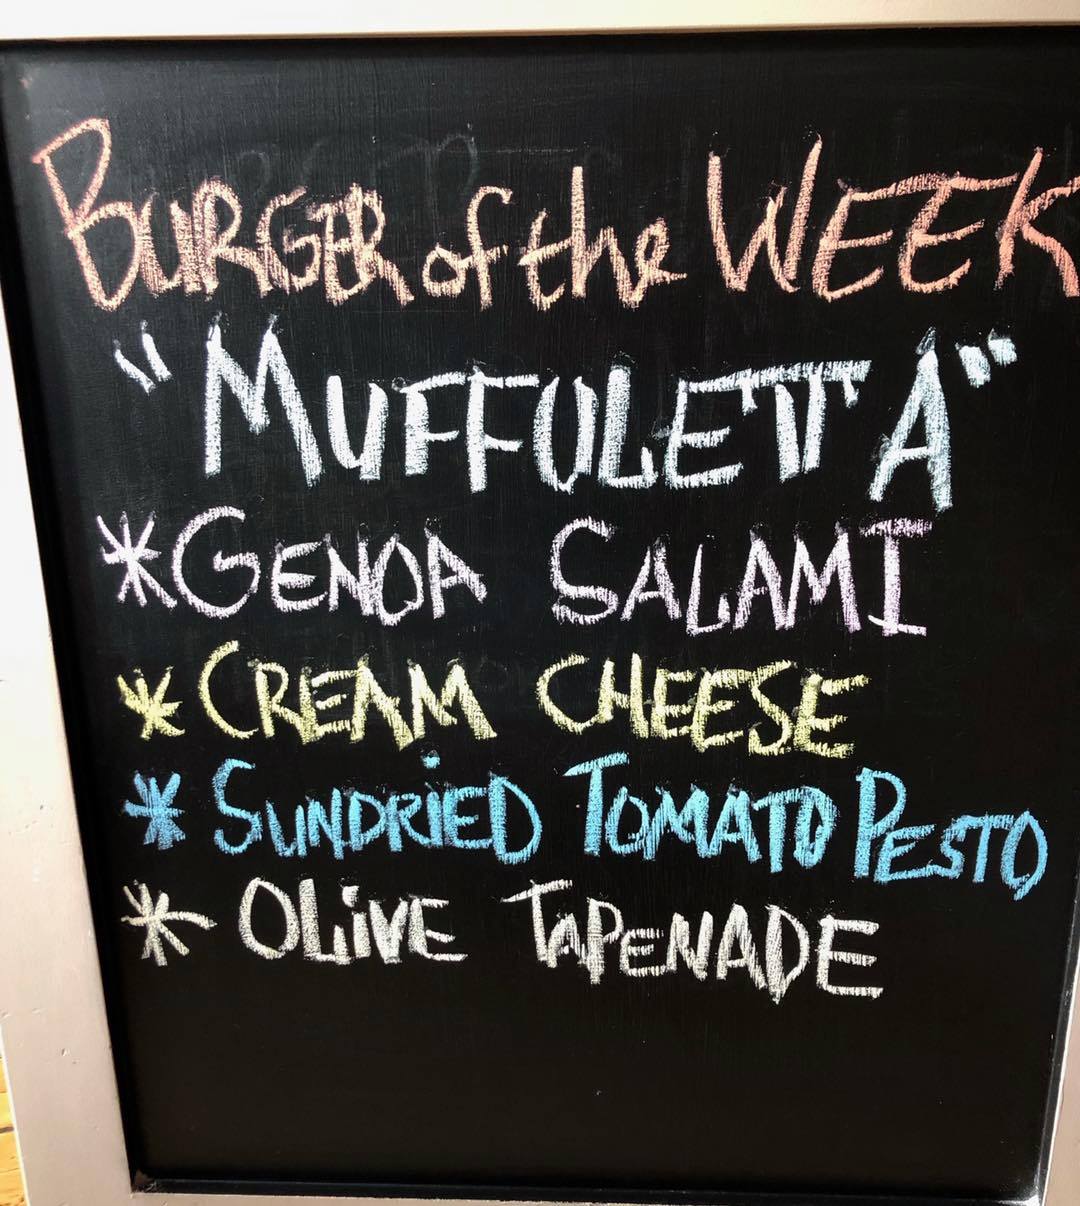 BURGER of the WEEK
"MUFFULETTA"
*GENOA SALAMI
* CREAM CHEESE
* SUNDRiED TOMATO PESTO
* OLiVE TAPENADE